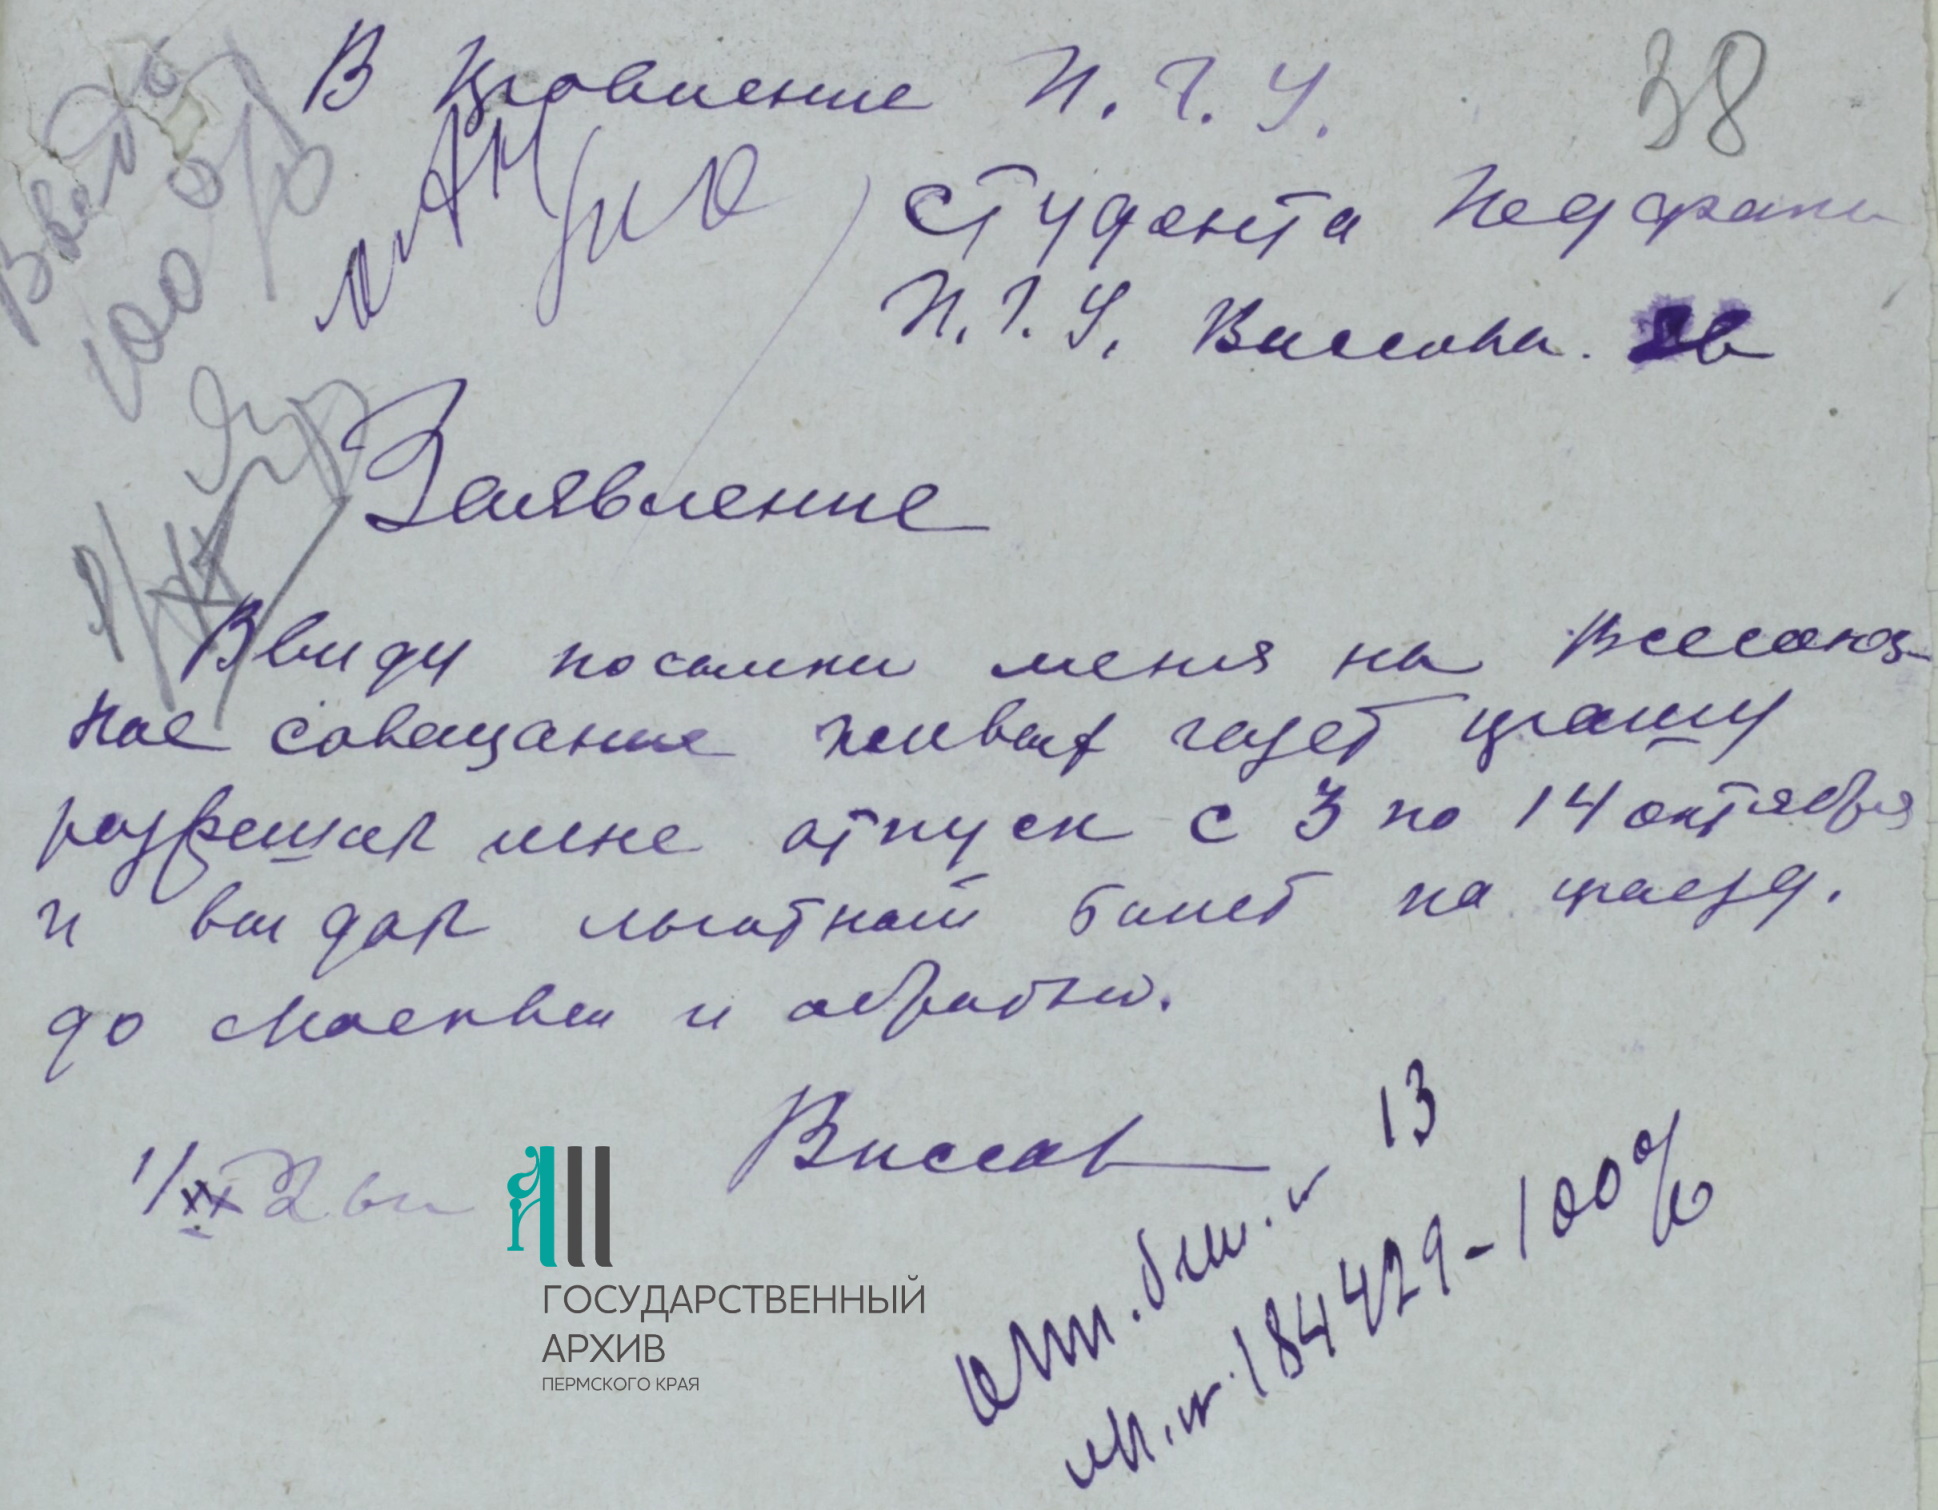 В Правление П. Г. У.
38
студента Педфака
П. Г. У. Виссова.
Заявление
Ввиду посылки меня на Всесоюз-
ное совещание живых газет прошу
разрешить мне отпуск с 3 по 14 октября
и выдать льготный билет на проезд.
до Москвы и обратно.
Виссов
1/X
отп. бил. № 13
лит. № 184429-100%
Выдать
100%
ГОСУДАРСТВЕННЫЙ
АРХИВ
ПЕРМСКОГО КРАЯ